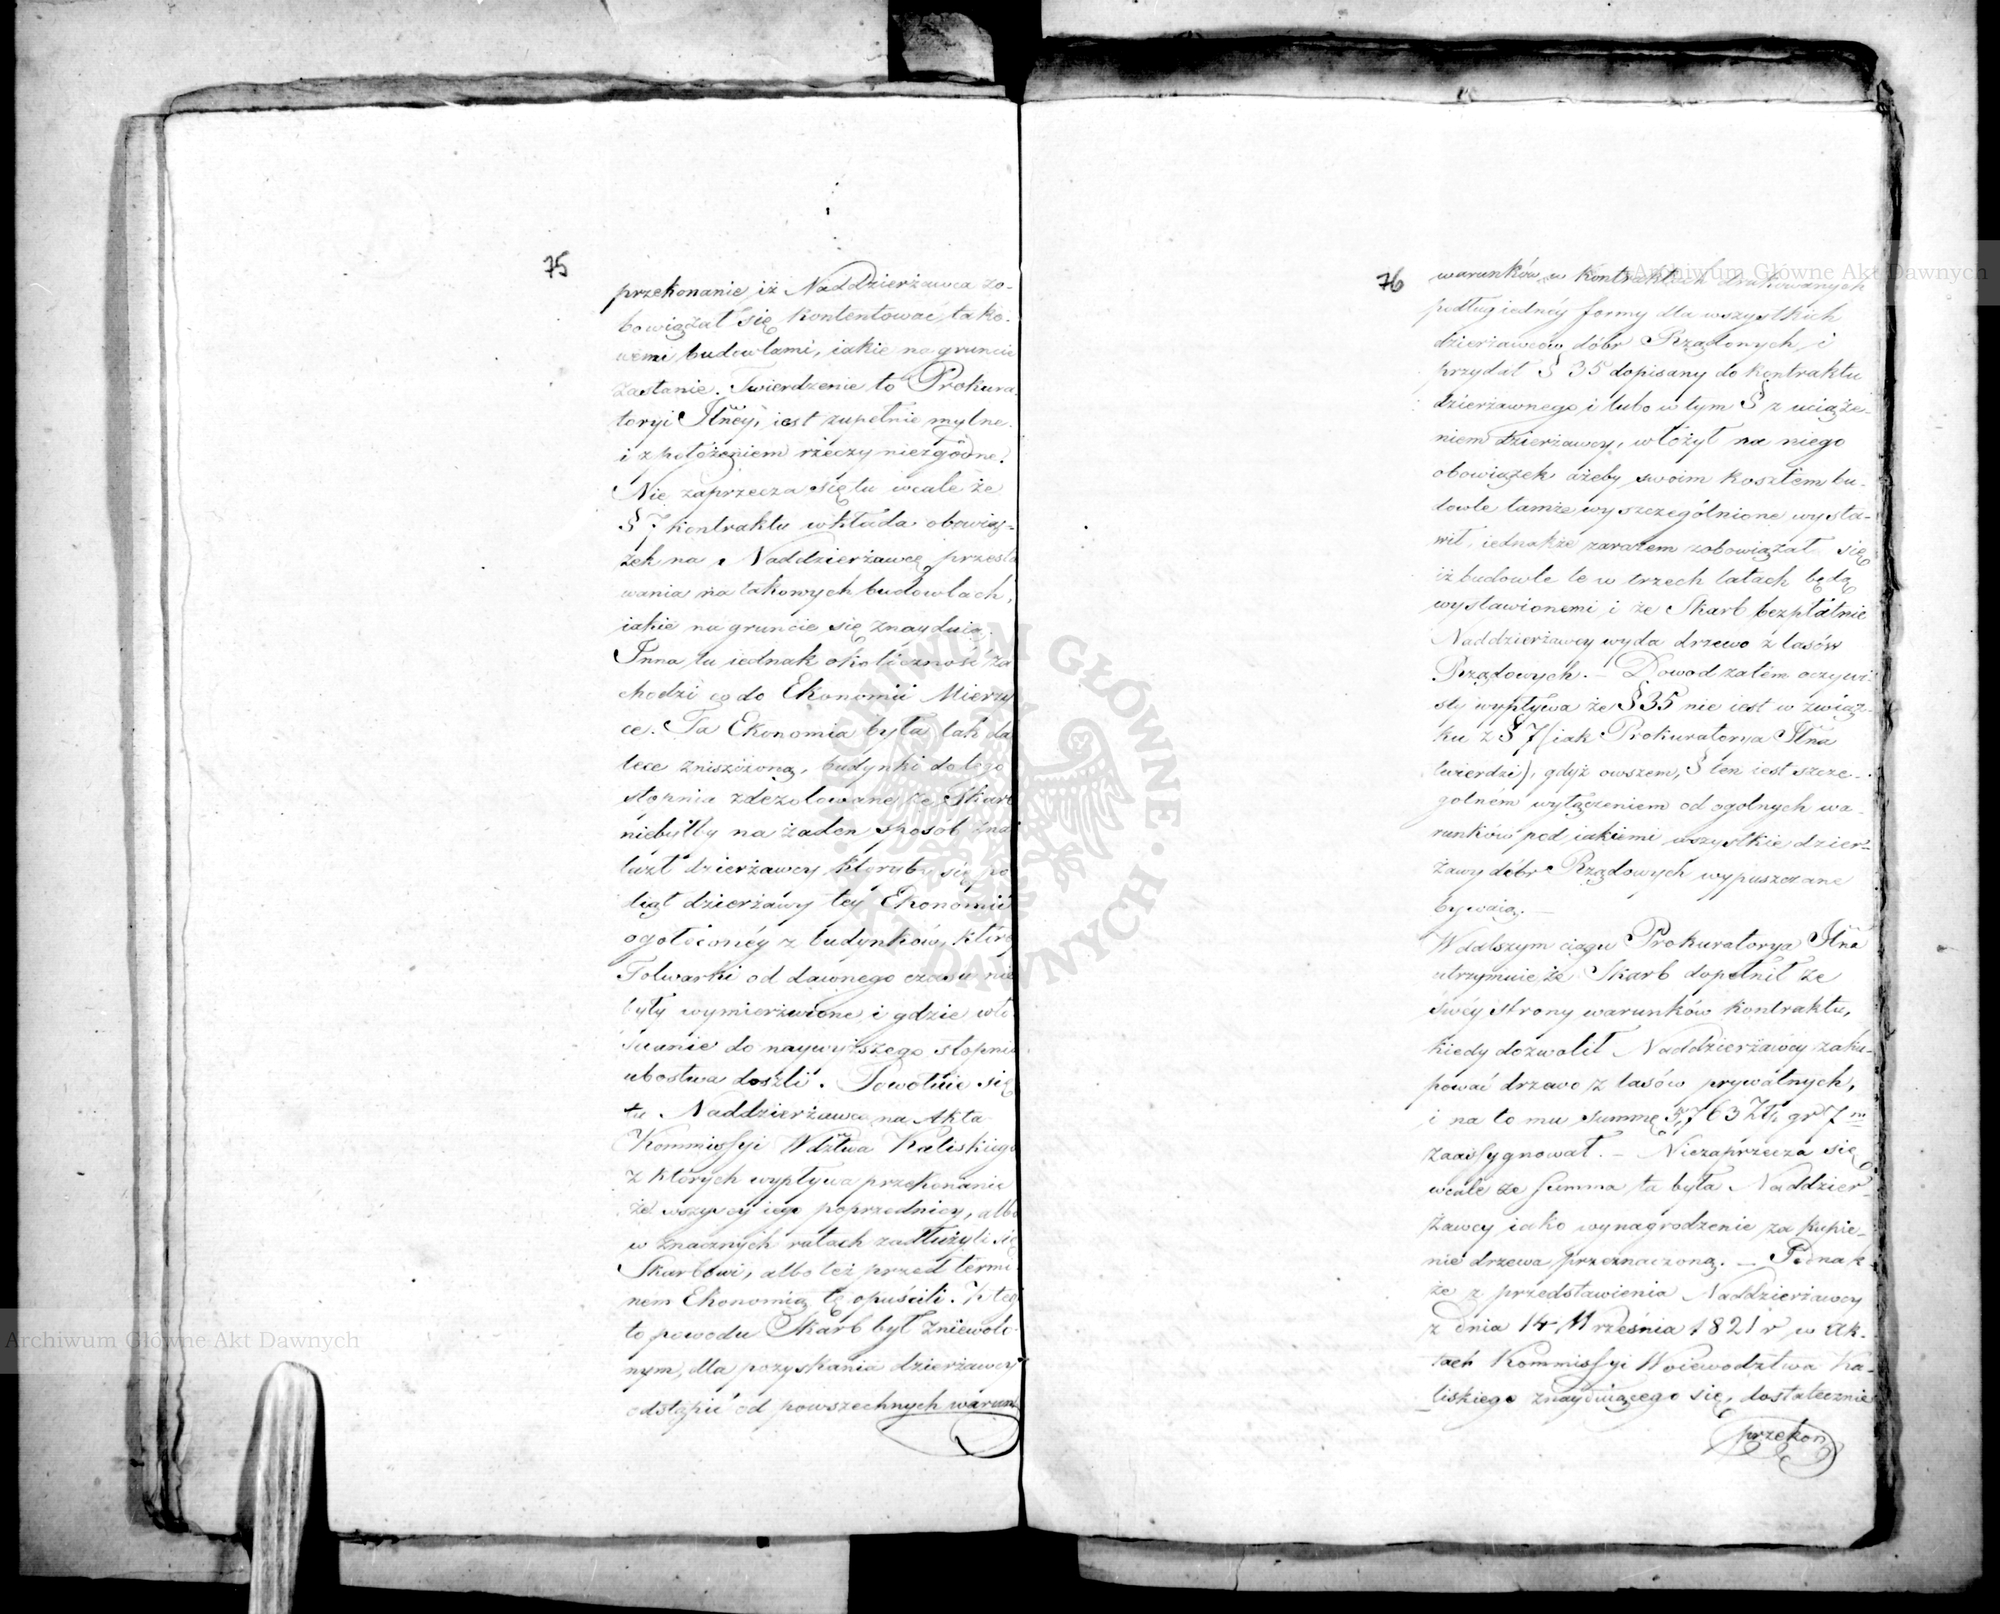 75
przekonanie, iż NadDzierżawca zo-
bowiązał się kontentować tako-
wemi budowlami, iakie na gruncie
zastanie. Twierdzenie to Prokura-
toryi Jlney, iest zupełnie mylne
i z położeniem rzeczy niezgodne.
Nie zaprzecza się tu wcale że
§ 7 kontraktu wkłada obowią-
zek na Naddzierżawcę przesta
wania na takowych budowlach,
iakie na gruncie się znayduią.
Jnna tu iednak okoliczność za
chodzi co do Ekonomii Mierzy
ce. Ta Ekonomia była tak da
lece zniszczoną, budynki do tego
stopnia zdezolowane że Skarb
niebyłby na żaden sposób zna
lazł dzierżawcy, któryby się po
diął dzierżawy tey Ekonomii
ogołoconéy z budynków, któré
Folwarki od dawnego czasu nie
były wymierzwione, i gdzie wło
ścianie do naywyższego stopnia
ubostwa doszli. Powołuie się
tu Naddzierżawca na Akta
Kommissyi Wdztwa Kaliskiego
z których wypływa przekonanie
że wszyscy iego poprzednicy, albo
w znacznych ratach zadłużyli się
Skarbowi, albo też przed termi
nem Ekonomią tę opuścili. Z tego
to powodu Skarb był zniewolo
nym, dla pozyskania dzierżawcy
odstąpić od powszechnych warun
76
warunków w kontraktach drukowanych
podług iednéy formy dla wszystkich
dzierżawców dóbr Rządowych, i
przydał § 35 dopisany do kontraktu
dzierżawnego i lubo w tym § z uciąże-
niem dzierżawcy, włożył na niego
obowiązek ażeby swoim kosztem bu-
dowle tamże wyszczególnione wysta-
wił, iednakże zarazem zobowiązał się
iż budowle te w trzech latach będą
wystawionemi i że Skarb bezpłatnie
Naddzierżawcy wyda drzewo z lasów
Rządowych. — Dowod zatem oczywi-
sty wypływa że § 35 nie iest w związ-
ku z § 7 (iak Prokuratorya Jlna
twierdzi), gdyż owszem, § ten iest szcze-
gólném wyłączeniem od ogolnych wa-
runków pod iakiemi wszystkie dzier-
żawy dóbr Rządowych wypuszczane
bywaią. —
W dalszym ciągu Prokuratorya Jlna
utrzymuie że Skarb dopełnił ze
swéy strony warunków kontraktu,
kiedy dozwolił Naddzierżawcy zaku-
pować drzewo z lasów prywatnych,
i na to mu summę 763 Złt. gr 7
zaassygnował. — Niezaprzecza się
wcale że summa ta była Naddzier-
żawcy iako wynagrodzenie za kupie-
nie drzewa przeznaczoną. — Jednak
że z przedstawienia Naddzierżawcy
z dnia 14 Września 1821 r w Ak-
tach Kommissyi Woiewodztwa Ka-
liskiego znayduiącego się, dostatecznie
przekon
Archiwum Główne Akt Dawnych
Archiwum Główne Akt Dawnych
ARCHIWUM GŁÓWNE AKT DAWNYCH